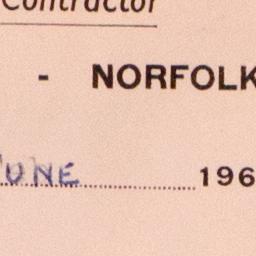 Contractor
- NORFOLK
JUNE 196